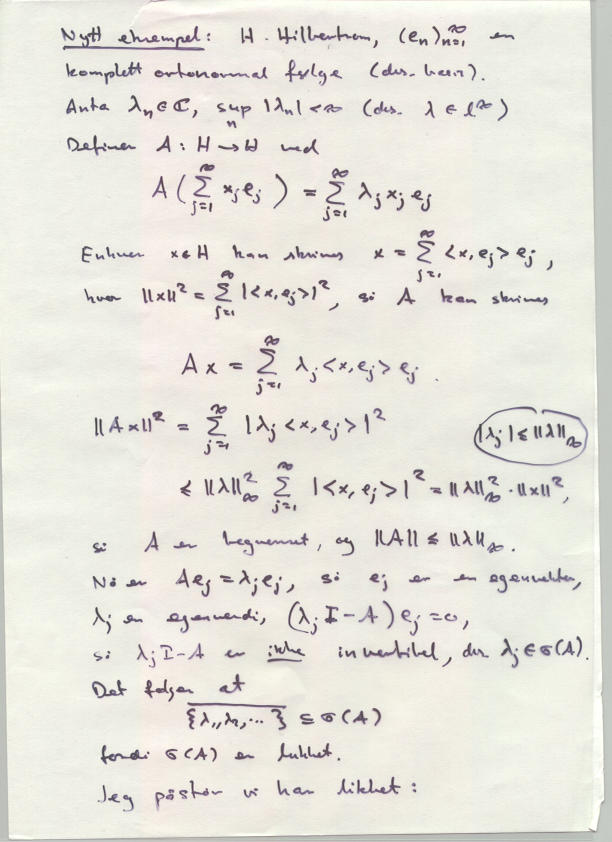 Nytt eksempel: H Hilbertrom, (e_n)_{n=1}^∞ en
komplett ortonormal følge (dvs. basis).
Anta λ_n ∈ ℂ, sup_n |λ_n| < ∞ (dvs. λ ∈ l^∞)
Definer A : H → H ved
A(∑_{j=1}^∞ x_j e_j) = ∑_{j=1}^∞ λ_j x_j e_j
Enhver x ∈ H kan skrives x = ∑_{j=1}^∞ <x, e_j> e_j,
hvor ||x||² = ∑_{j=1}^∞ |<x, e_j>|², så A kan skrives
Ax = ∑_{j=1}^∞ λ_j <x, e_j> e_j.
||Ax||² = ∑_{j=1}^∞ |λ_j <x, e_j>|²
|λ_j| ≤ ||λ||_∞
≤ ||λ||_∞² ∑_{j=1}^∞ |<x, e_j>|² = ||λ||_∞² · ||x||²,
så A er begrenset, og ||A|| ≤ ||λ||_∞.
Nå er Ae_j = λ_j e_j, så e_j er en egenvektor,
λ_j en egenverdi, (λ_j I - A) e_j = 0,
så λ_j I - A er ikke invertibel, dvs λ_j ∈ σ(A).
Det følger at
\overline{{λ_1, λ_2, ...}} ⊆ σ(A)
fordi σ(A) er lukket.
Jeg påstår vi har likhet: